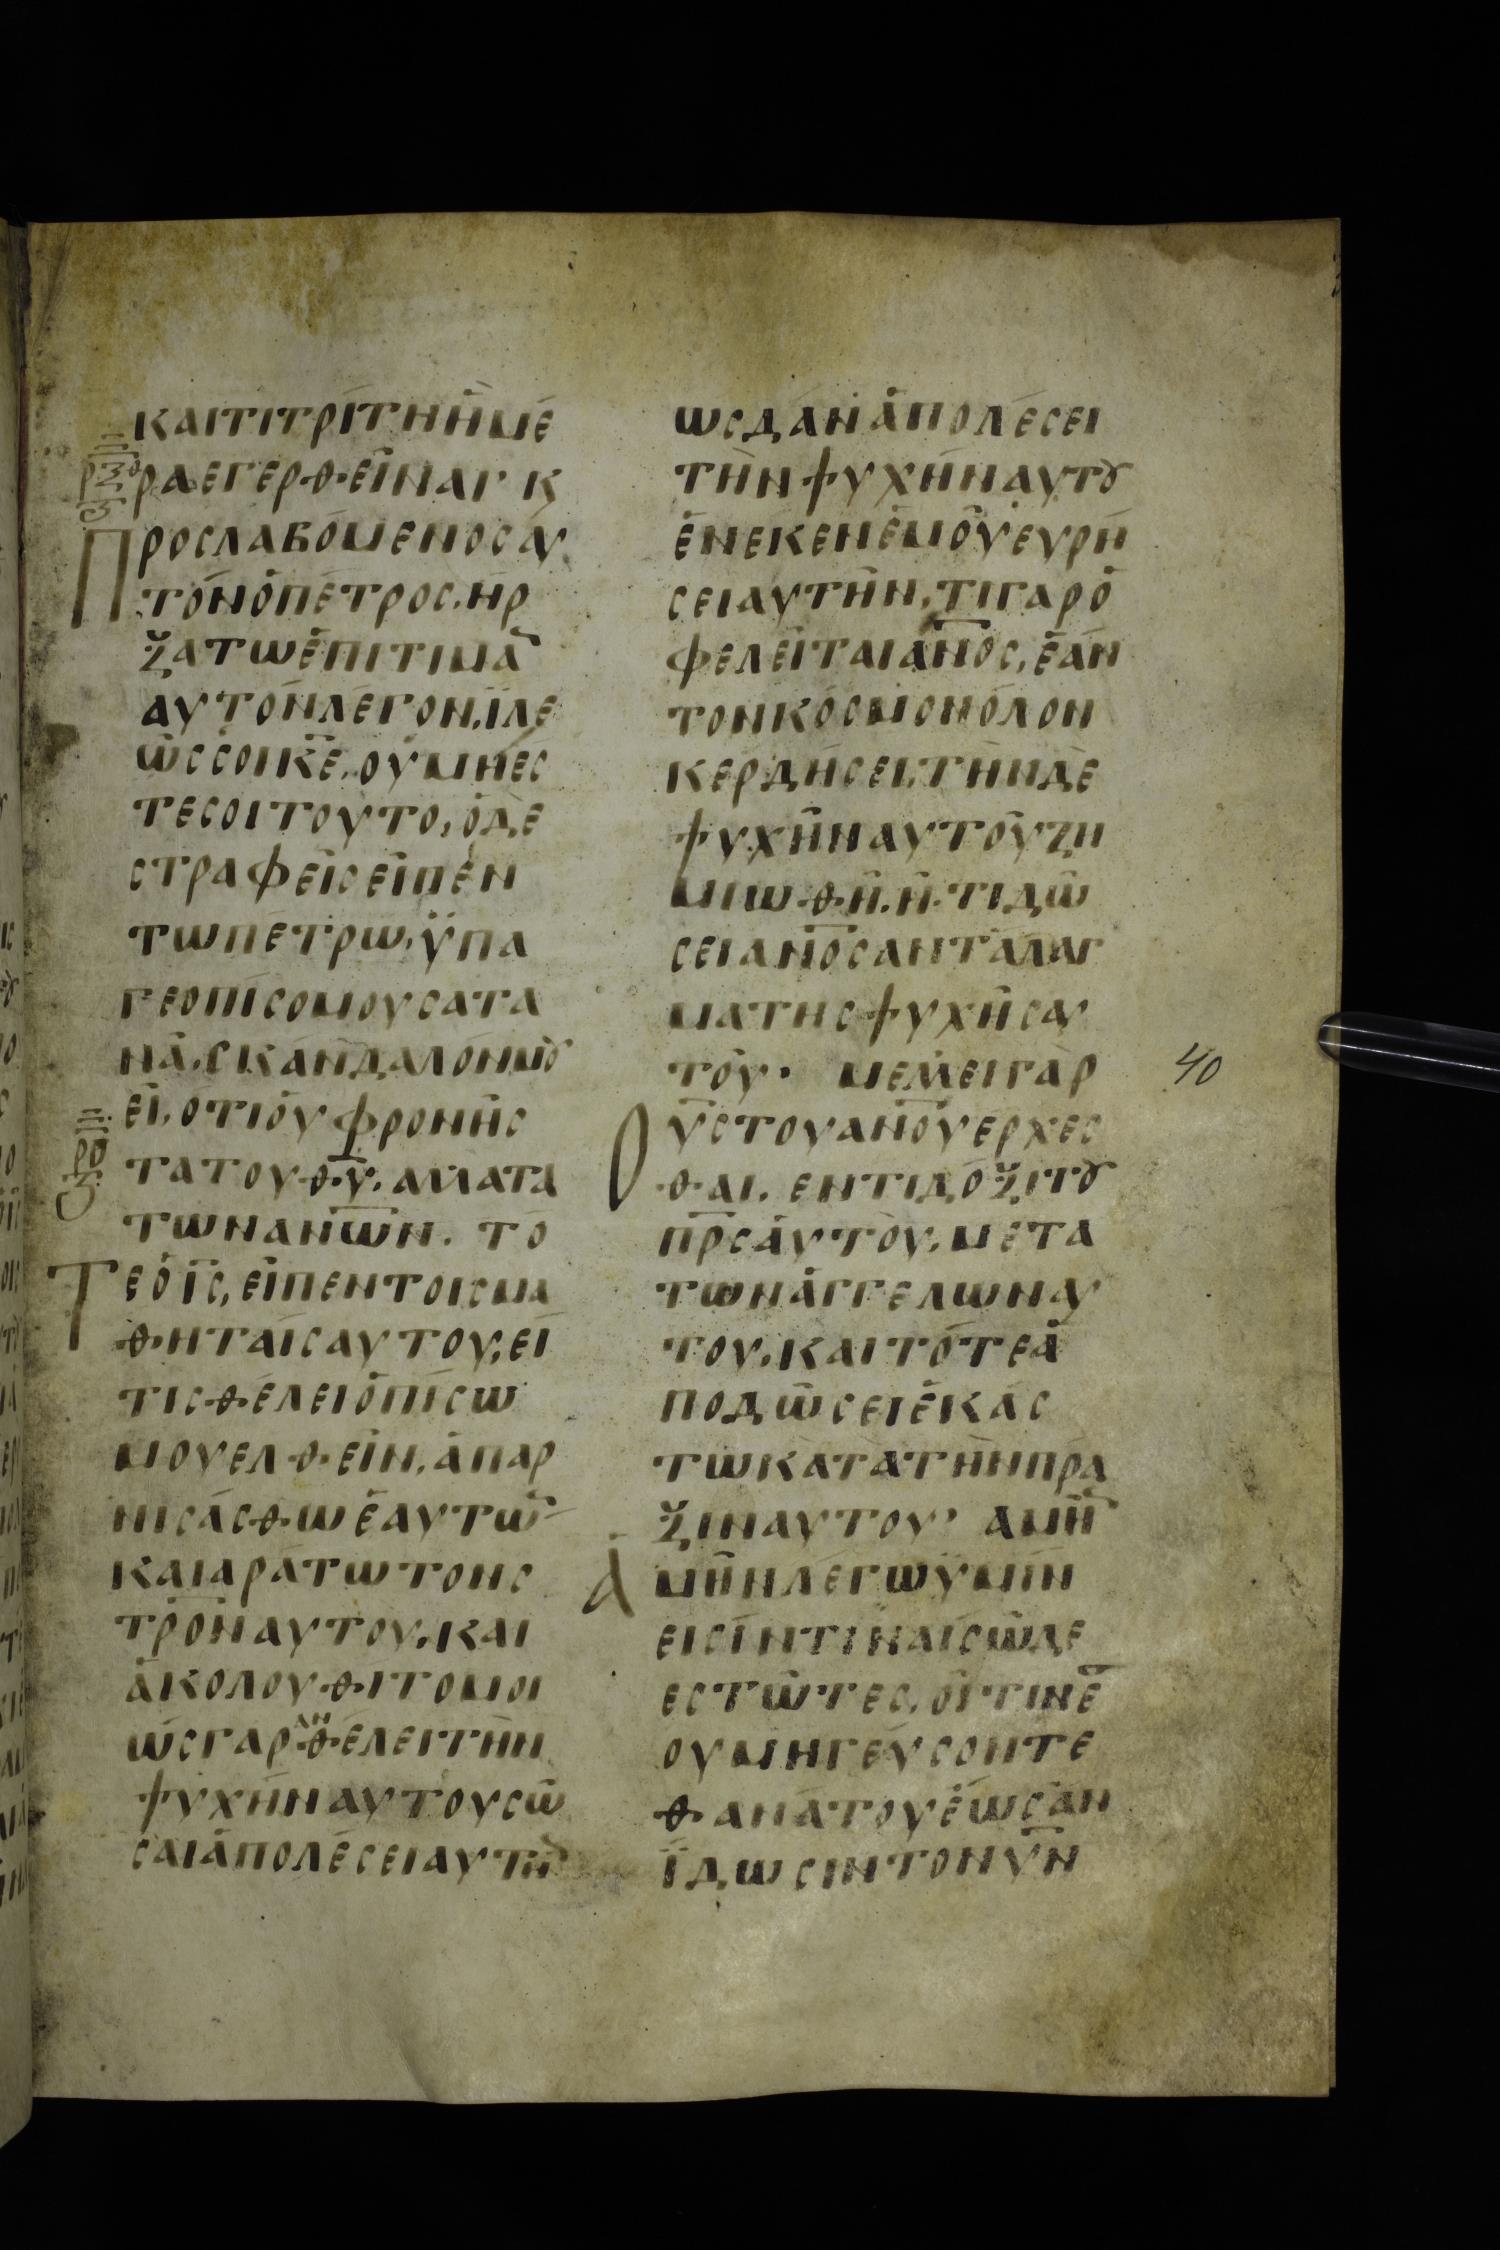 ΚΑΙΤΙΤΡΙΤΗΗΜΕ
ΡΑΕΓΕΡΘΕΙΝΑΙ Κ
ΠΡΟΣΛΑΒΟΜΕΝΟΣΑΥ
ΤΟΝΟΠΕΤΡΟΣ. ΗΡ
ΞΑΤΩΕΠΙΤΙΜΑ̅
ΑΥΤΟΝΛΕΓΟΝ. ΪΛΕ
ΩΣΣΟΙΚ̅Ε̅. ΟΥΜΗΕΣ
ΤΕΣΟΙΤΟΥΤΟ, ΟΔΕ
ΣΤΡΑΦΕΙΣΕΙΠΕΝ
ΤΩΠΕΤΡΩ. ΫΠΑ
ΓΕΟΠΙΣΟΜΟΥΣΑΤΑ
ΝΑ. ΣΚΑΝΔΑΛΟΝΜȢ
ΕΙ. ΟΤΙΟΥΦΡΟΝΗΣ
ΤΑΤΟΥΘ̅Υ̅. ΑΛΛΑΤΑ
ΤΩΝΑΝ̅Ω̅Ν. ΤΟ
ΤΕΟΙ̅Σ̅, ΕΙΠΕΝΤΟΙΣΜΑ
ΘΗΤΑΙΣΑΥΤΟΥ, ΕΙ
ΤΙΣΘΕΛΕΙΟΠΙΣΩ
ΜΟΥΕΛΘΕΙΝ. ΑΠΑΡ
ΝΙΣΑΣΘΩΕΑΥΤΩ̅
ΚΑΙΑΡΑΤΩΤΟΝΣ
ΤΡ̅Ο̅ΝΑΥΤΟΥ. ΚΑΙ
ΑΚΟΛΟΥΘΙΤΟΜΟΙ
ΩΣΓΑΡΑΝΘΕΛΕΙΤΗΝ
ΨΥΧΗΝΑΥΤΟΥΣΩ
ΣΑΙΑΠΟΛΕΣΕΙΑΥΤΗ̅
ΩΣΔΑΝΑΠΟΛΕΣΕΙ
ΤΗΝΨΥΧΗΝΑΥΤȢ
ΕΝΕΚΕΝΕΜΟΥΕΥΡΗ
ΣΕΙΑΥΤΗΝ. ΤΙΓΑΡΟ
ΦΕΛΕΙΤΑΙΑΝ̅Ο̅Σ, ΕΑΝ
ΤΟΝΚΟΣΜΟΝΟΛΟΝ
ΚΕΡΔΗΣΕΙ. ΤΗΝΔΕ
ΨΥΧΗΝΑΥΤΟΥΖΗ
ΜΙΩΘΗ. Η ΤΙΔΩ
ΣΕΙΑΝ̅Ο̅ΣΑΝΤΑΛΑΓ
ΜΑΤΗΣΨΥΧΗΣΑΥ
ΤΟΥ· ΜΕΛΛΕΙΓΑΡ
ΟΥ̅ΣΤΟΥΑΝ̅Ο̅ΥΕΡΧΕΣ
ΘΑΙ. ΕΝΤΙΔΟΞΙΤȢ
Π̅Ρ̅ΣΑΥΤΟΥ. ΜΕΤΑ
ΤΩΝΑΓΓΕΛΩΝΑΥ
ΤΟΥ. ΚΑΙΤΟΤΕΑ
ΠΟΔΩΣΕΙΕΚΑΣ
ΤΩΚΑΤΑΤΗΝΠΡΑ
ΞΙΝΑΥΤΟΥ· ΑΜΗ̅
ΑΜΗΝΛΕΓΩΫΜΙΝ
ΕΙΣΙΝΤΙΝΑΙΣΩΔΕ
ΕΣΤΩΤΕΣ. ΟΙΤΙΝΕ̅
ΟΥΜΗΓΕΥΣΟΝΤΕ
ΘΑΝΑΤΟΥΕΩΣΑΝ
ΪΔΩΣΙΝΤΟΝΥ̅Ν̅
40